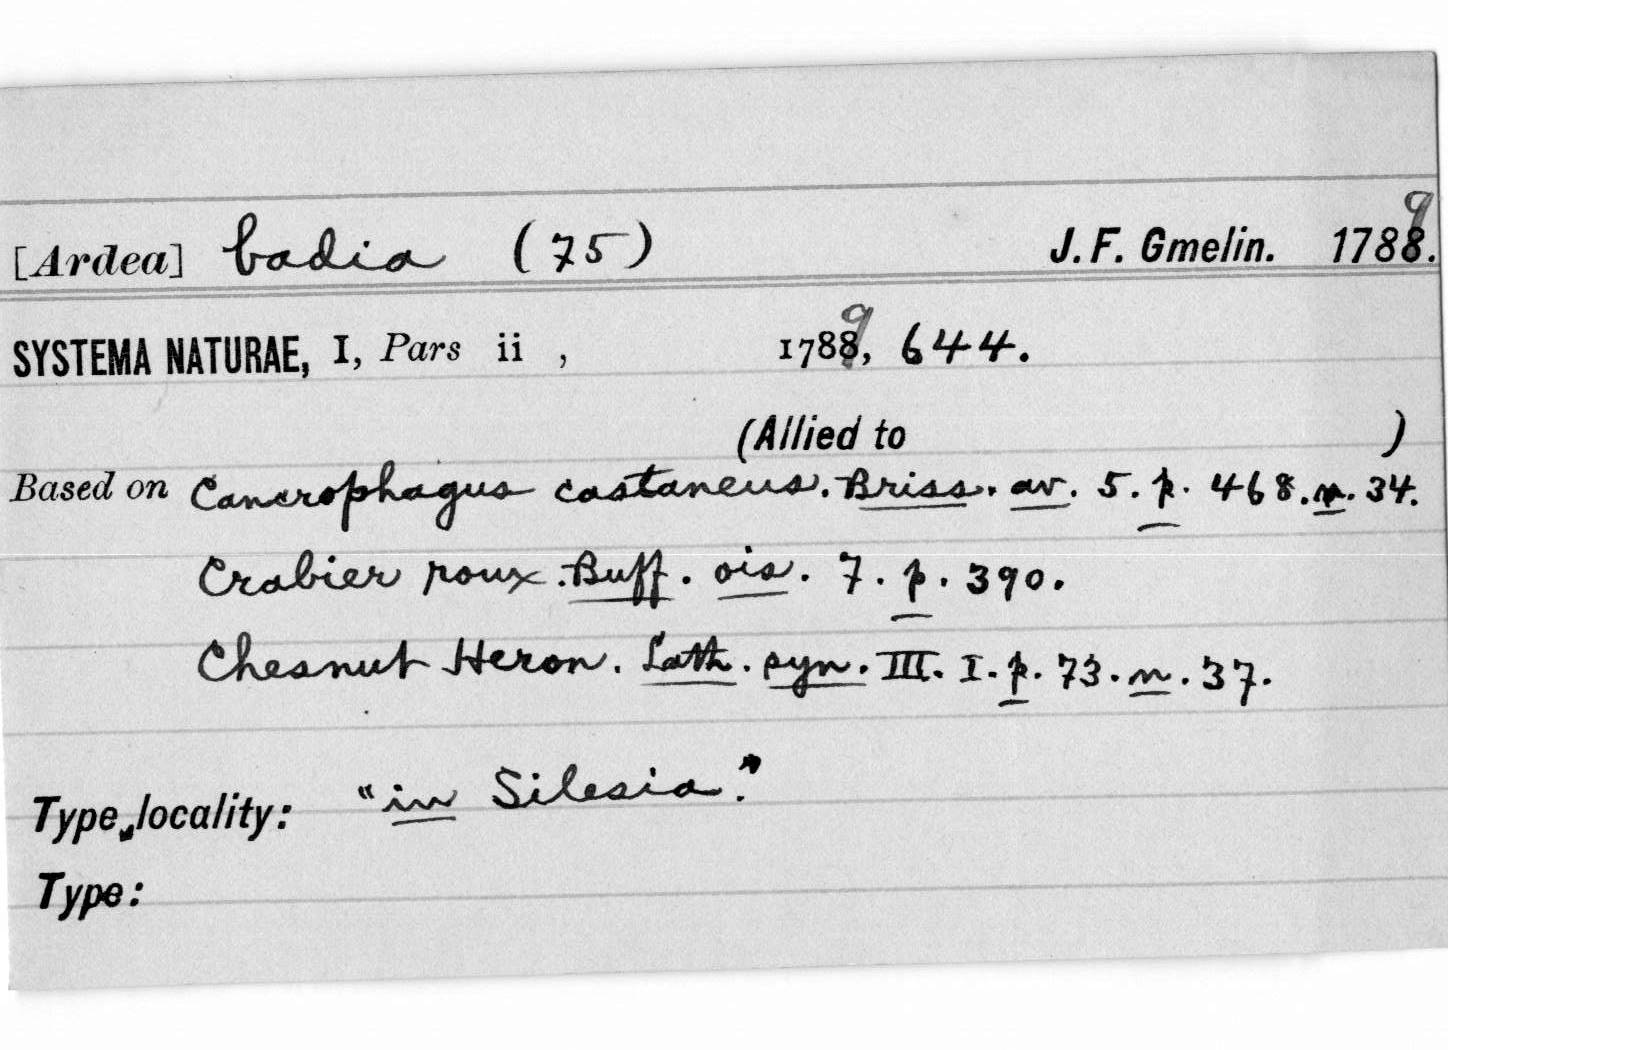 [Ardea] badia (75) J. F. Gmelin. 1789.
SYSTEMA NATURAE, I, Pars ii , 1789, 644.
(Allied to )
Based on Cancrophagus castaneus. Briss. av. 5. p. 468. n. 34.
Crabier roux. Buff. ois. 7. p. 390.
Chesnut Heron. Lath. syn. III. I. p. 73. n. 37.
Type locality: "in Silesia."
Type: